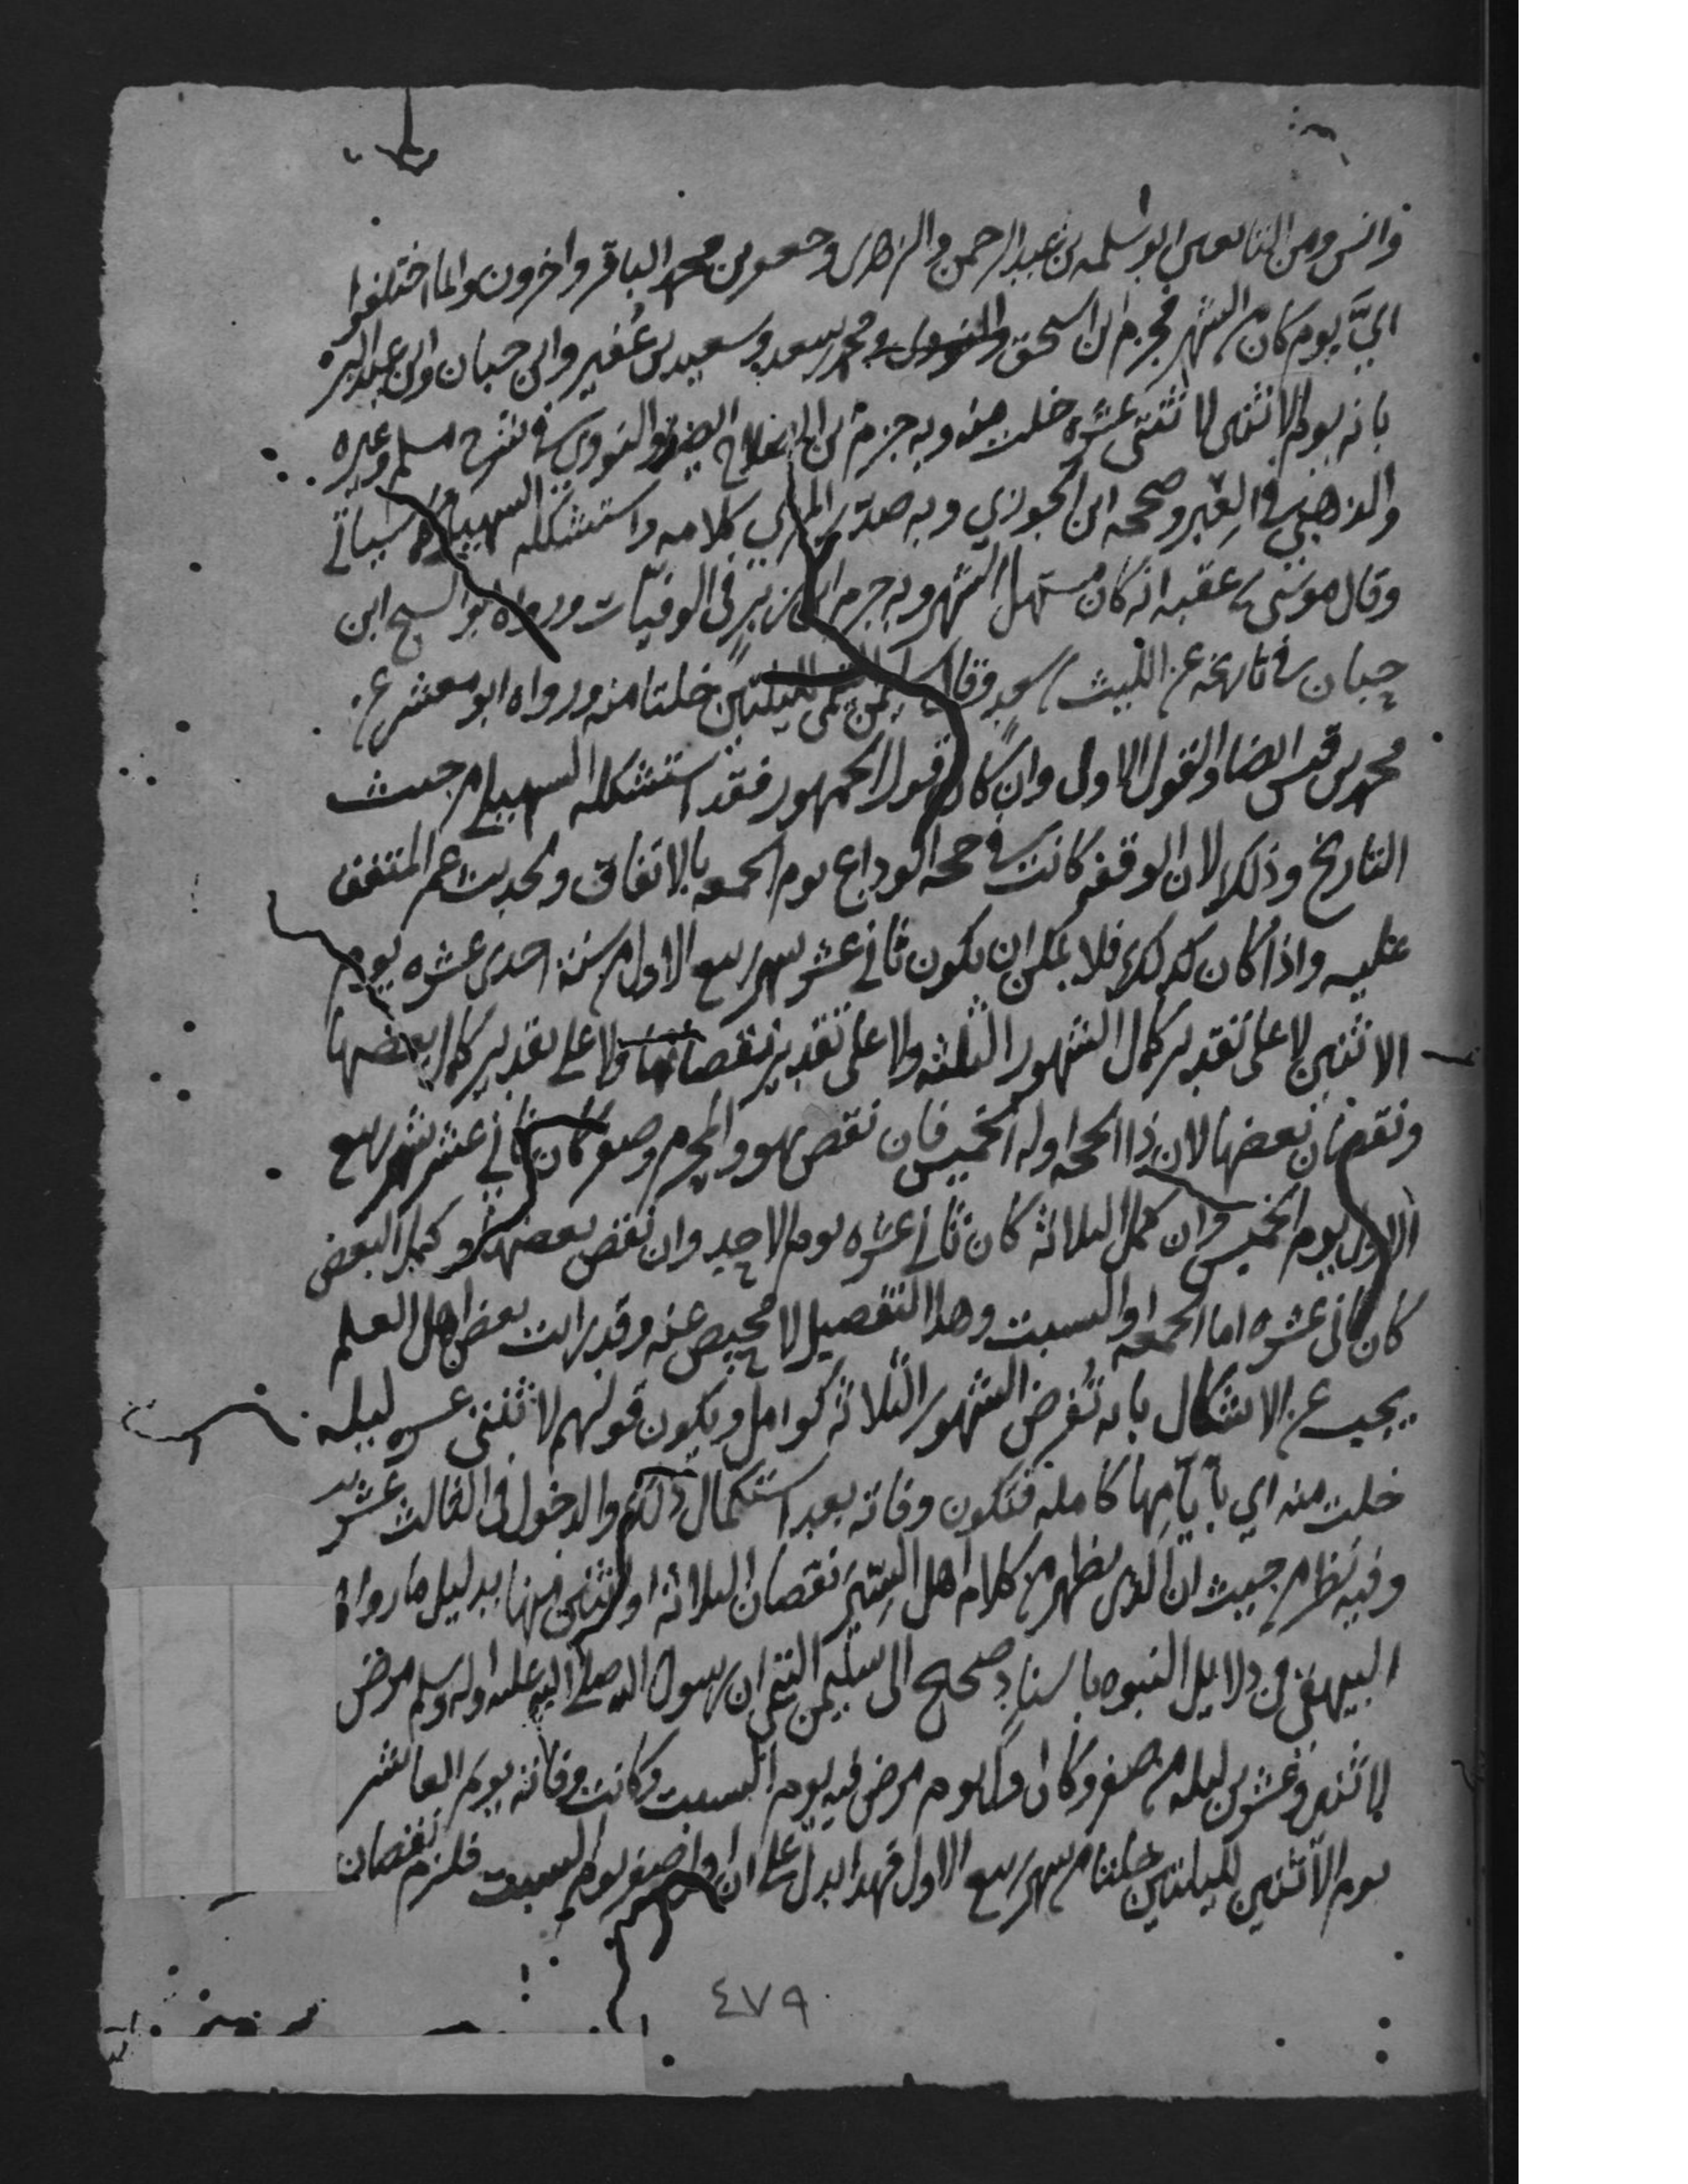 وانس ومن التابعين ابو سلمه بن عبد الرحمن والزهري وجعفر بن محمد الباقر واخرون وانما اختلفوا
ايَّ يوم كان من الشهر فجزم ابن اسحق ومحمد بن سعد وسعيد بن عُفير وابن حبان وابن عبد البر
بانه يوم الاثنين لاثنتي عشره خلت منه وبه جزم ابن الصلاح ايضا والنووي في شرح مسلم وغيره
والذهبي في العبر وصححه ابن الجوزي وبه صدّر المزي كلامه واستشكله السهيلي كما سياتي
وقال موسى بن عقبه انه كان مستهل الشهر وبه جزم ابن زبر في الوفيات ورواه ابو الشيخ ابن
حبان في تاريخه عن الليث بن سعد وقال سليمن التيمي لليلتين خلتا منه ورواه ابو معشر عن
محمد بن قيس ايضا والقول الاول وان كان قول الجمهور فقد استشكله السهيلي من حيث
التاريخ وذلك لان الوقفه كانت في حجه الوداع يوم الجمعه بالاتفاق لحديث عمر المتفق
عليه واذا كان كذلك فلا يمكن ان يكون ثاني عشر شهر ربيع الاول من سنة احدى عشره يوم
الاثنين لا على تقدير كمال الشهور الثلثه ولا على تقدير نقصانها ولا على تقدير كمال بعضها
ونقصان بعضها لان ذا الحجه اوله الخميس فان نقص هو والمحرم وصفر كان ثاني عشر شهر ربيع
الاول يوم الخميس وان كمل الثلاثه كان ثاني عشره يوم الاحد وان نقص بعضها وكمل البعض
كان ثاني عشره اما الجمعه او السبت وهذا التفصيل لا محيص عنه وقد رايت بعض اهل العلم
يجيب عن الاشكال بانه تُفرض الشهور الثلاثه كوامل ويكون قولهم لاثنتي عشره ليله
خلت منه اي بايّامها كامله فتكون وفاته بعد استكمال ذلك والدخول في الثالث عشر
وفيه نظر من حيث ان الذي يظهر من كلام اهل السِّيَر نقصان الثلاثه او اثنين منها بدليل ما رواه
البيهقي في دلايل النبوه باسناد صحيح الى سليمن التيمي ان رسول الله صلى الله عليه واله وسلم مرض
لاثنين وعشرين ليله من صفر وكان اول يوم مرض فيه يوم السبت وكانت وفاته يوم العاشر
يوم الاثنين لليلتين خلتا من شهر ربيع الاول فهذا يدل على ان اول صفر يوم السبت فلزم نقصان
٤٧٩